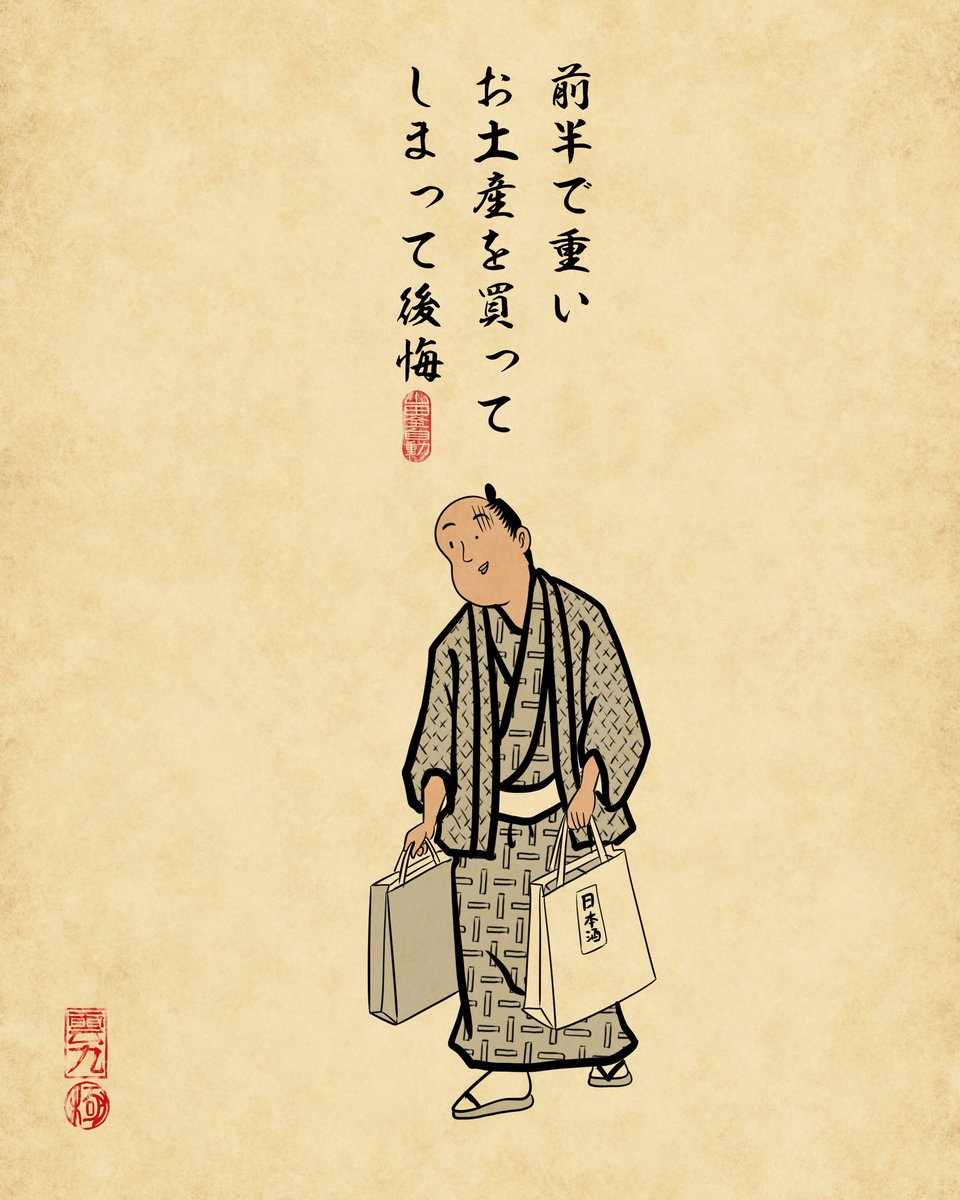 前半で重い
お土産を買って
しまって後悔
日本酒